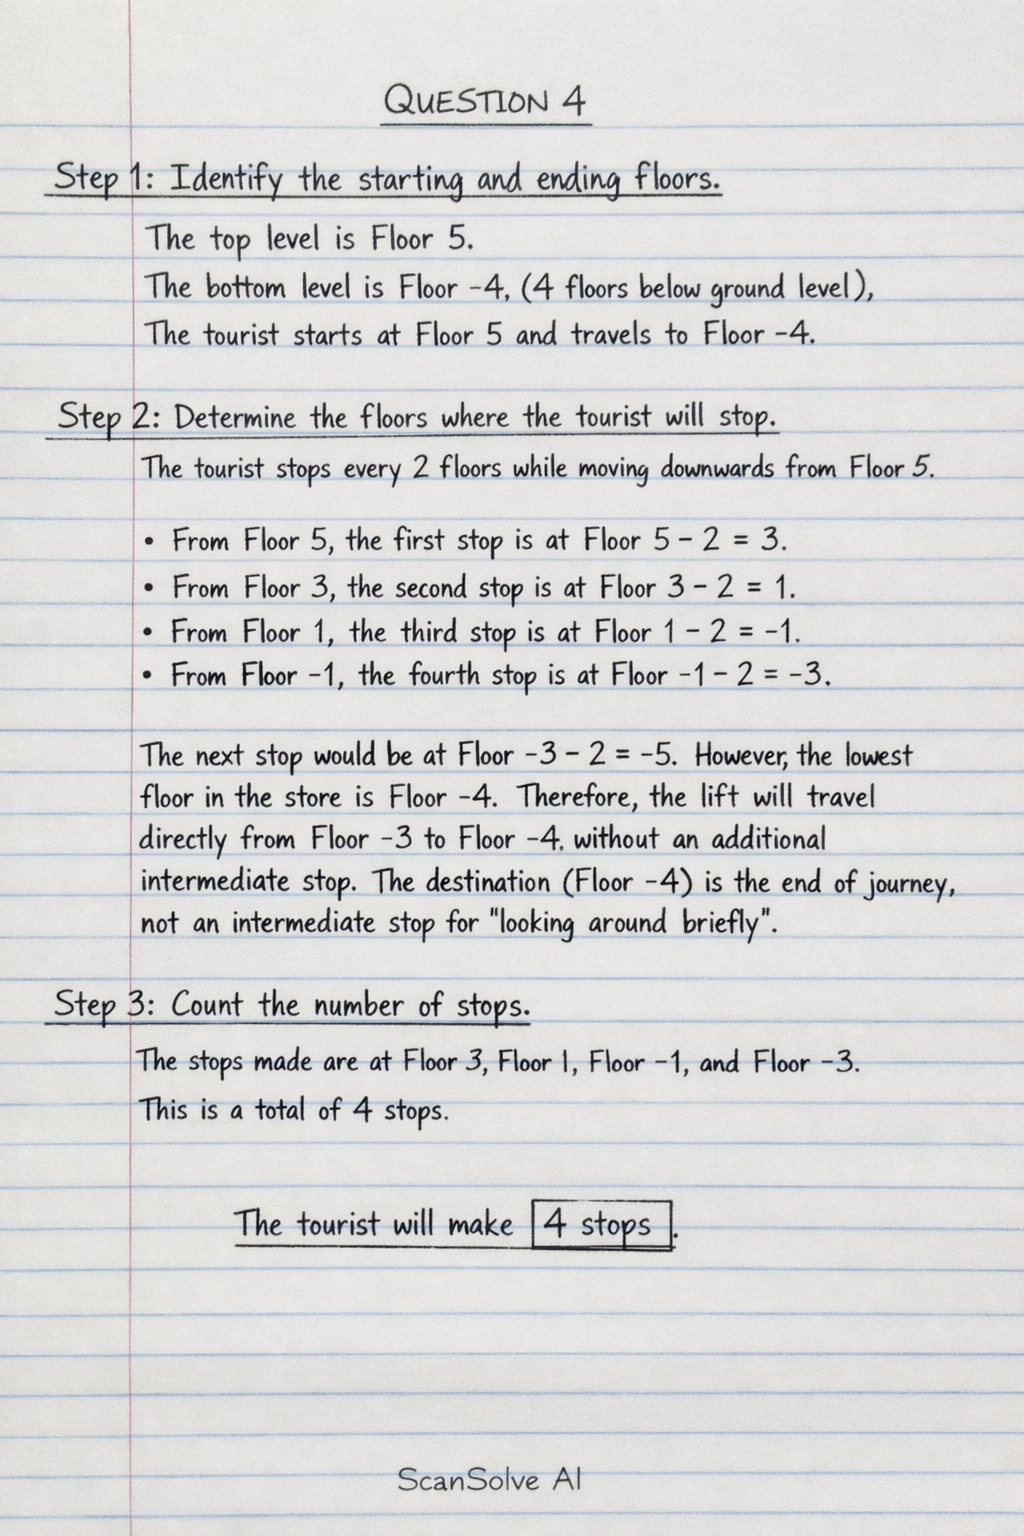 QUESTION 4
Step 1: Identify the starting and ending floors.
The top level is Floor 5.
The bottom level is Floor -4, (4 floors below ground level),
The tourist starts at Floor 5 and travels to Floor -4.
Step 2: Determine the floors where the tourist will stop.
The tourist stops every 2 floors while moving downwards from Floor 5.
• From Floor 5, the first stop is at Floor 5 - 2 = 3.
• From Floor 3, the second stop is at Floor 3 - 2 = 1.
• From Floor 1, the third stop is at Floor 1 - 2 = -1.
• From Floor -1, the fourth stop is at Floor -1 - 2 = -3.
The next stop would be at Floor -3 - 2 = -5. However, the lowest
floor in the store is Floor -4. Therefore, the lift will travel
directly from Floor -3 to Floor -4. without an additional
intermediate stop. The destination (Floor -4) is the end of journey,
not an intermediate stop for "looking around briefly".
Step 3: Count the number of stops.
The stops made are at Floor 3, Floor 1, Floor -1, and Floor -3.
This is a total of 4 stops.
The tourist will make 4 stops.
ScanSolve AI